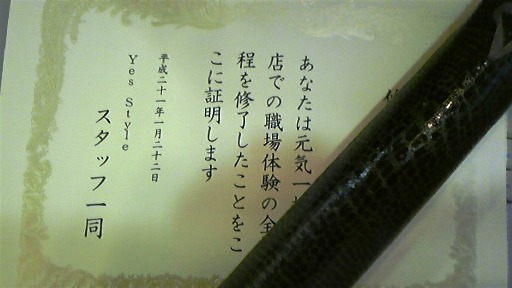 あなたは元気一
店での職場体験の全
程を修了したことをこ
こに証明します
平成二十一年一月二十二日
Yes Style
スタッフ一同